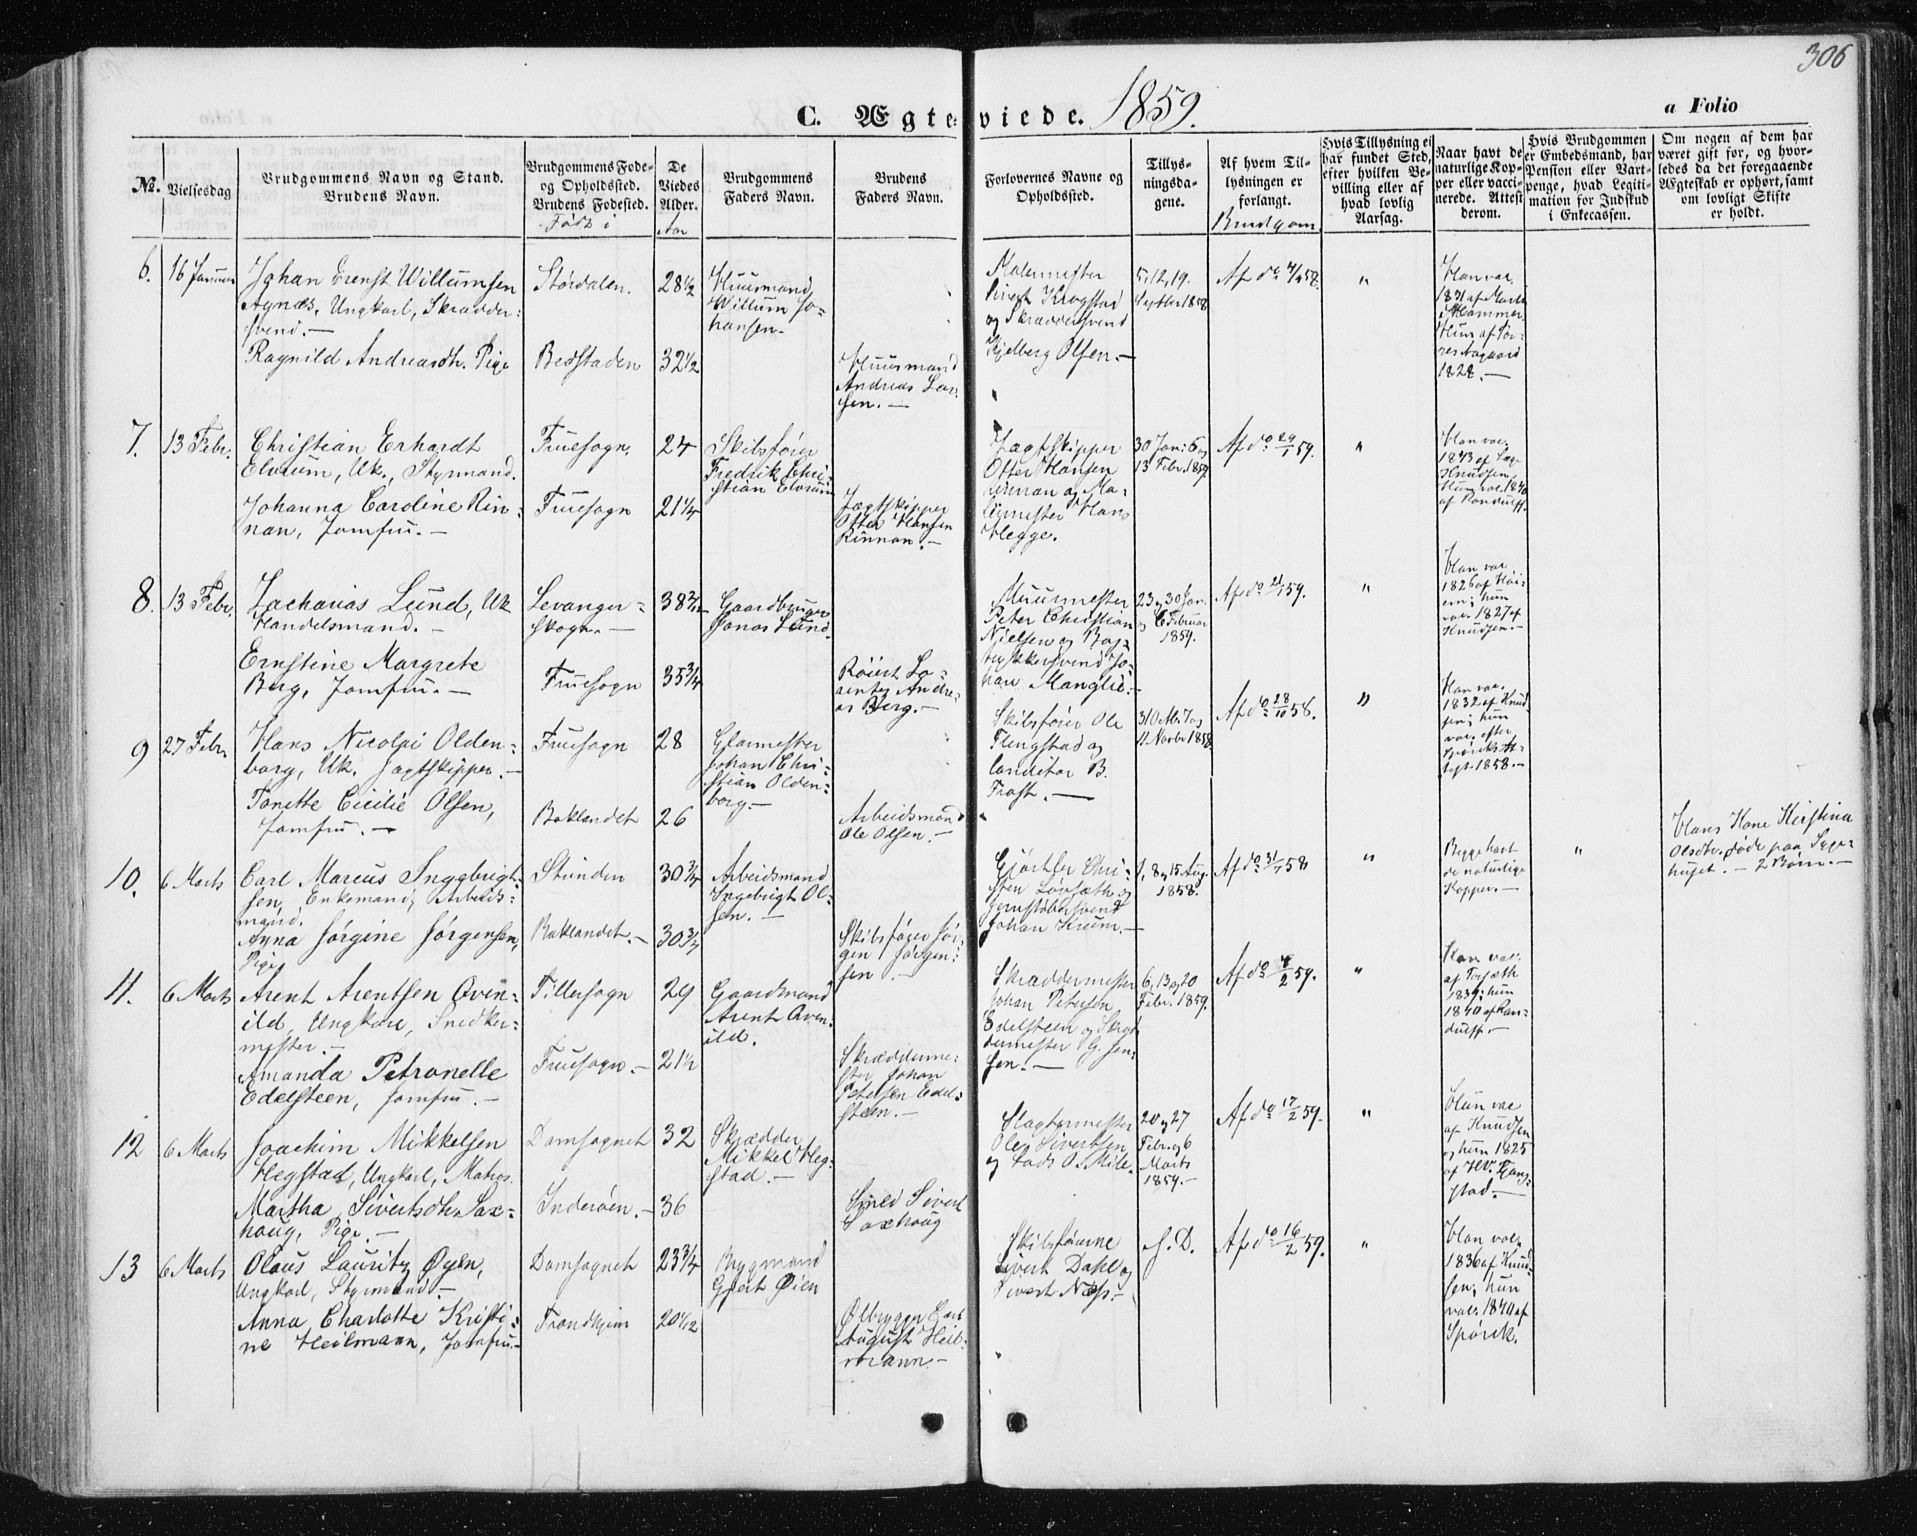 306
C. Ægteviede. 1859.
a Folio
No.
Vielsesdag
Brudgommens Navn og Stand.
Brudens Navn.
Brudgommens Fode-
og Opholdssted.
Brudens Fodested.
Født i
De
Viedes
Alder.
Aar
Brudgommens
Faders Navn.
Brudens
Faders Navn.
Forlovernes Navne og
Opholdssted.
Tillys-
ningsda-
gene.
Af hvem Til-
lysningen er
forlangt.
Brudgom
Hvis Tillysning ei
har fundet Sted,
efter hvilken Be-
villing eller af
hvad lovlig
Aarsag.
Naar havt de
naturlige Kop-
per eller vacci-
nerede. Attest
derom.
Hvis Brudgommen
er Embedsmand, har
Pension eller Vart-
penge, hvad Legiti-
mation for Indskud
i Enkecassen.
Om nogen af dem har
været gift før, og hvor-
ledes da det foregaaende
Ægteskab er ophørt, samt
om lovligt Skifte
er holdt.
6.
16 Januar
Johan Ernst Willumsen
Aynæs, Ungkarl, Skrædder-
svend.-
Ragnild Andreasdtr. Pige
Størdalen.
Bedstaden
28 1/2
32 1/2
Huusmand
Willum Jo-
hansen.-
Huusmand
Andreas Lar-
sen.-
Malermester
Sivert Krogstad
og Skræddersvend
Kjelberg Olsen.-
5, 12, 19.
Septbr 1858
Af do 4/9 58.
"
Han vac.
1831 af
Hammer
Hun af
Aagaard
1828.-
7.
13 Febr.
Christian Erhardt
Elvrum, Uk., Styrmand.
Johanna Caroline Rin-
nan, Jomfru.-
Fruesogn.
Fruesogn
24
21 1/4
Skibsfører
Fredrik Chri-
stian Elvrum
Jagtskipper
Otter Hansen
Rinnan.-
Jagtskipper
Otter Hansen
Rinnan og Ma-
lermester Hans
Hegge.
30 Jan: 6 og
13 Febr. 1859.
Af do 29/1 59.
"
Han vac.
1843 af
Knudsen,
Hun vac. 1840
af Randulff.
8.
13 Febr.
Zacharias Lund, Uk
Handelsmand.-
Ernstine Margrete
Berg, Jomfru.-
Levanger-
skogn.-
Fruesogn
38 3/12
35 3/4
Gaardbruger
Jonas Lund.
Røiert Lo-
rentz Andre-
as Berg.-
Muurmester
Peter Christian
Nielsen og Bog-
trykkersvend Jo-
han Manglie.-
23 og 30 Jan.
og 6 Februar
1859.
Af do 21/1 59.
"
Han vac
1826 af Høi-
em; hun
vac. 1827 af
Knudsen.-
9
27 Febr.
Hans Nicolai Olden-
borg, Uk. Jagtskipper.-
Tonette Cicilie Olsen,
Jomfru.-
Fruesogn
Baklandet
28
26
Glarmester
Johan Chri-
stian Olden-
borg.-
Arbeidsmand
Ole Olsen.-
Skibsfører Ole
Flengstad og
Conditor B.
Frost.-
Af do 28/10 58.
"
Han vac.
1832 af Knud-
sen; hun
vac. efter
Spørcks At-
test 1858.-
10.
6 Marts
Carl Marcus Inggbrigt-
sen, Enkemand, Arbeids-
mand.
Anna Jørgine Jørgensen,
Pige
Strinden
Baklandet.-
30 3/4
30 3/4
Arbeidsmand
Ingebrigt Ol-
sen.-
Skibsfører Jør-
gen Jørgen-
sen.-
Gjørtler Chri-
sten Løvsæth og
Jernstøbersvend
Johan Krum.-
1, 8 og 15 Aug.
1858.
Af do 31/7 58
"
Begge havt
de naturlige
Kopper.-
"
Hans Kone Kirstina
Olsdtr. døde paa Syge-
huset.- 2 Børn.-
11.
6 Marts
Arent Arentsen Qven-
ild, Ungkarl, Snedker-
mester.-
Amanda Petronelle
Edelsteen, Jomfru.-
Tillersogn
Fruesogn.-
29
21 1/2
Gaardmand
Arent Qven-
ild.
Skrædderme-
ster Johan
Petersen Edel-
steen.-
Skræddermester
Johan Petersen
Edelsteen og Skræd-
dermester G. Jen-
sen.-
6, 13 og 20
Febr. 1859.
Af do 4/2 59.
"
Han vac.
af Forsæth
1839; hun
1840 af Ran-
dulff.-
12
6 Marts
Joachim Mikkelsen
Hegstad, Ungkarl, Matros.
Martha Sivertsdtr. Sax-
houg, Pige.-
Domsognet
Inderøen.-
32
36
Skrædder
Mikkel Heg-
stad.-
Smed Sivert
Saxhoug
Slagtermester
Ole Sivertsen
og Lods O. Mile.
20 og 27
Febr. og 6
Marts
1859.-
Af do 17/2 59.
"
Han vac
af Knudsen
og hun 1825
af Hr.
13
6 Marts
Olaus Lauritz Øyen,
Ungkarl, Styrmand.-
Anna Charlotte Kristi-
ne Heilmann, Jomfru.-
Domsognet
Trondhjem
23 3/4
20 1/12
Bygmand
Gjert Øien
Ølbrygger Carl
August Heil-
mann.-
Skibsførerne
Sivert Dahl og
Sivert Næss.-
s. D.
Af do 16/2 59.
"
Han vac.
1836 af Knud-
sen; hun
vac. 1840 af
Spørck.